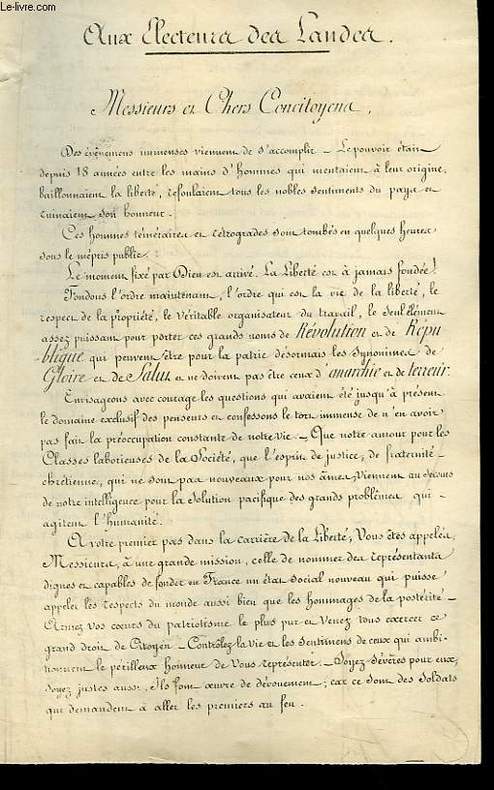 Le-livre.com
Aux Electeurs des Landes.
Messieurs et Chers Concitoyens,
Des évènemens immenses viennent de s'accomplir – Le pouvoir était
depuis 18 années entre les mains d'hommes qui mentaient à leur origine,
baillonnaient la liberté, refoulaient tous les nobles sentiments du pays et
ruinaient son honneur.
Ces hommes téméraires et rétrogrades sont tombés en quelques heures
sous le mépris public.
Le moment fixé par Dieu est arrivé. La Liberté est à jamais fondée !
Fondons l'ordre maintenant, l'ordre qui est la vie de la liberté, le
respect de la propriété, le véritable organisateur du travail, le seul élément
assez puissant pour porter ces grands noms de Révolution et de Répu
blique qui peuvent être pour la patrie désormais les synonimes de
Gloire et de Salut et ne doivent pas être ceux d'anarchie et de terreur.
Envisageons avec courage les questions qui avaient été jusqu'à présent
le domaine exclusif des penseurs et confessons le tort immense de n'en avoir
pas fait la préoccupation constante de notre vie – Que notre amour pour les
Classes laborieuses de la Société, que l'esprit de justice, de fraternité –
chrétienne, qui ne sont pas nouveaux pour nos âmes, viennent au secours
de notre intelligence pour la solution pacifique des grands problèmes qui –
agitent l'humanité.
A votre premier pas dans la carrière de la Liberté, Vous êtes appelés,
Messieurs, à une grande mission, celle de nommer des représentants
dignes et capables de fonder en France un état social nouveau qui puisse
appeler les respects du monde aussi bien que les hommages de la postérité –
Armez vos cœurs du patriotisme le plus pur et venez tous exercer ce
grand droit de Citoyen – Contrôlez la vie et les sentimens de ceux qui ambi-
tionnent le périlleux honneur de Vous représenter. – Soyez sévères pour eux,
soyez justes aussi, Ils font œuvre de dévouement ; car ce sont des Soldats
qui demandent à aller les premiers au feu.